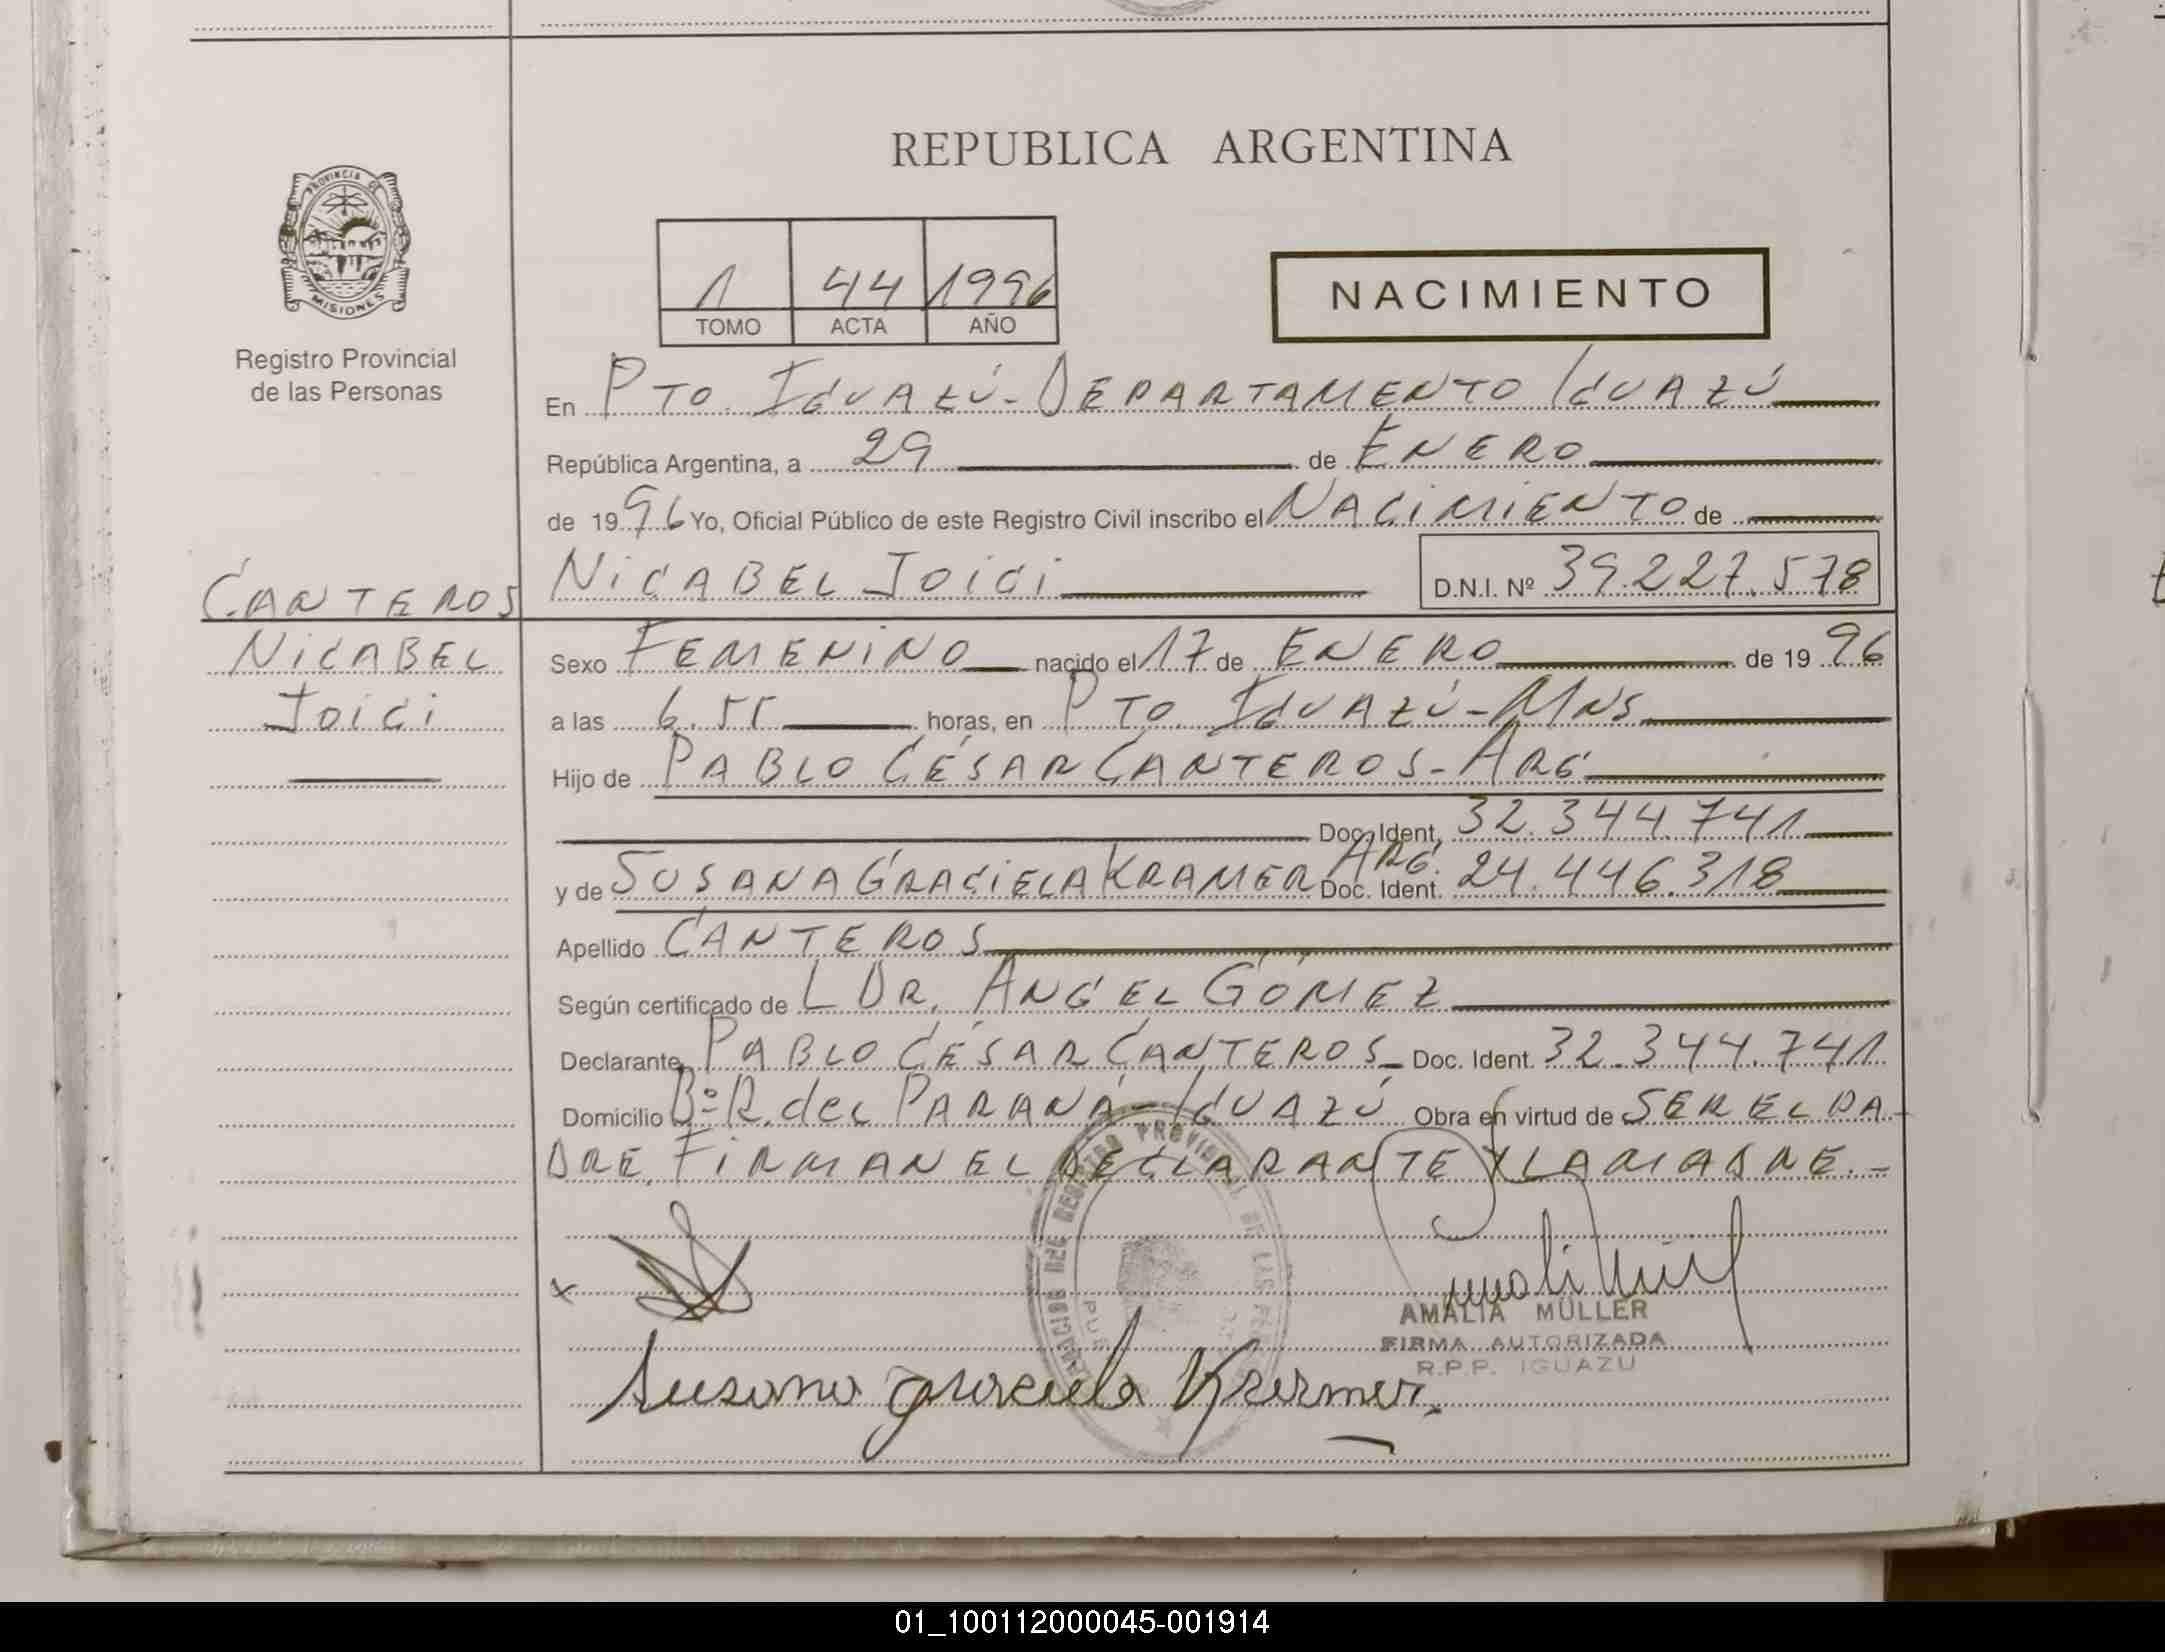 REPUBLICA ARGENTINA
PROVINCIA DE
MISIONES
Registro Provincial
de las Personas
1 44 1996
TOMO ACTA AÑO
NACIMIENTO
En PTO. IGUAZÚ - DEPARTAMENTO IGUAZÚ
República Argentina, a 29 de ENERO
de 1996 Yo, Oficial Público de este Registro Civil inscribo el NACIMIENTO de
NICABEL JOICI D.N.I. Nº 39.227.578
CANTEROS
NICABEL
JOICI
Sexo FEMENINO nacido el 17 de ENERO de 1996
a las 6.55 horas, en PTO. IGUAZÚ - MNS
Hijo de PABLO CÉSAR CANTEROS - ARG
Doc. Ident. 32.344.741
y de SUSANA GRACIELA KRAMER ARG. Doc. Ident. 24.446.318
Apellido CANTEROS
Según certificado de L DR. ANGEL GÓMEZ
Declarante PABLO CÉSAR CANTEROS - Doc. Ident. 32.344.741
Domicilio Bº R. del PARANÁ - IGUAZÚ Obra en virtud de SER EL PA-
DRE. FIRMAN EL DECLARANTE Y LA MADRE. -
x
AMALIA MÜLLER
FIRMA AUTORIZADA
R.P.P. IGUAZU
Susana Graciela Kramer.
01_100112000045-001914